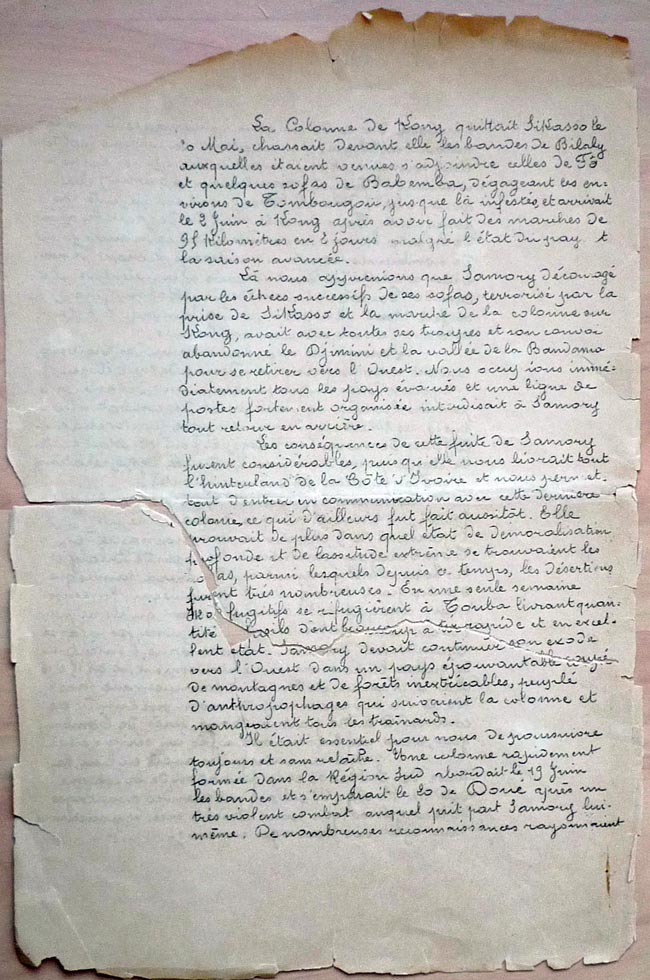 La Colonne de Kong quittait Sikasso le
0 Mai, chassait devant elle les bandes de Bilaly
auxquelles étaient venues s'adjoindre celles de Fô
et quelques sofas de Babemba, dégageant les en-
virons de Tombougou, jusque là infestés, et arrivait
le 2 Juin à Kong après avoir fait des marches de
95 kilomètres en 2 jours malgré l'état du pay t
la saison avancée.
Là nous apprenions que Samory découragé
par les échecs successifs de ses sofas, terrorisé par la
prise de Sikasso et la marche de la colonne sur
Kong, avait avec toutes ses troupes et son convoi
abandonné le Djimini et la vallée de la Bandama
pour se retirer vers l'Ouest. Nous occupions immé-
diatement tous les pays évacués et une ligne de
postes fortement organisée interdisait à Samory
tout retour en arrière.
Les conséquences de cette fuite de Samory
furent considérables, puisqu'elle nous livrait tout
l'hinterland de la Côte d'Ivoire et nous permet-
tait d'entrer en communication avec cette dernière
colonie, ce qui d'ailleurs fut fait aussitôt. Elle
prouvait de plus dans quel état de démoralisation
profonde et de lassitude extrême se trouvaient les
as, parmi lesquels depuis ce temps, les désertions
furent très nombreuses. En une seule semaine
fugitifs se réfugièrent à Touba livrant quan-
tité fusils dont beaucoup à tir rapide et en excel-
lent état. Samory devait continuer son exode
vers l'Ouest dans un pays épouvantable coupé
de montagnes et de forêts inextricables, peuplé
d'anthropophages qui suivaient la colonne et
mangeaient tous les traînards.
Il était essentiel pour nous de poursuivre
toujours et sans relâche. Une colonne rapidement
formée dans la Région Sud abordait le 19 Juin
les bandes et s'emparait le 20 de Doué après un
très violent combat auquel prit part Samory lui-
même. De nombreuses reconnaissances rayonnaient